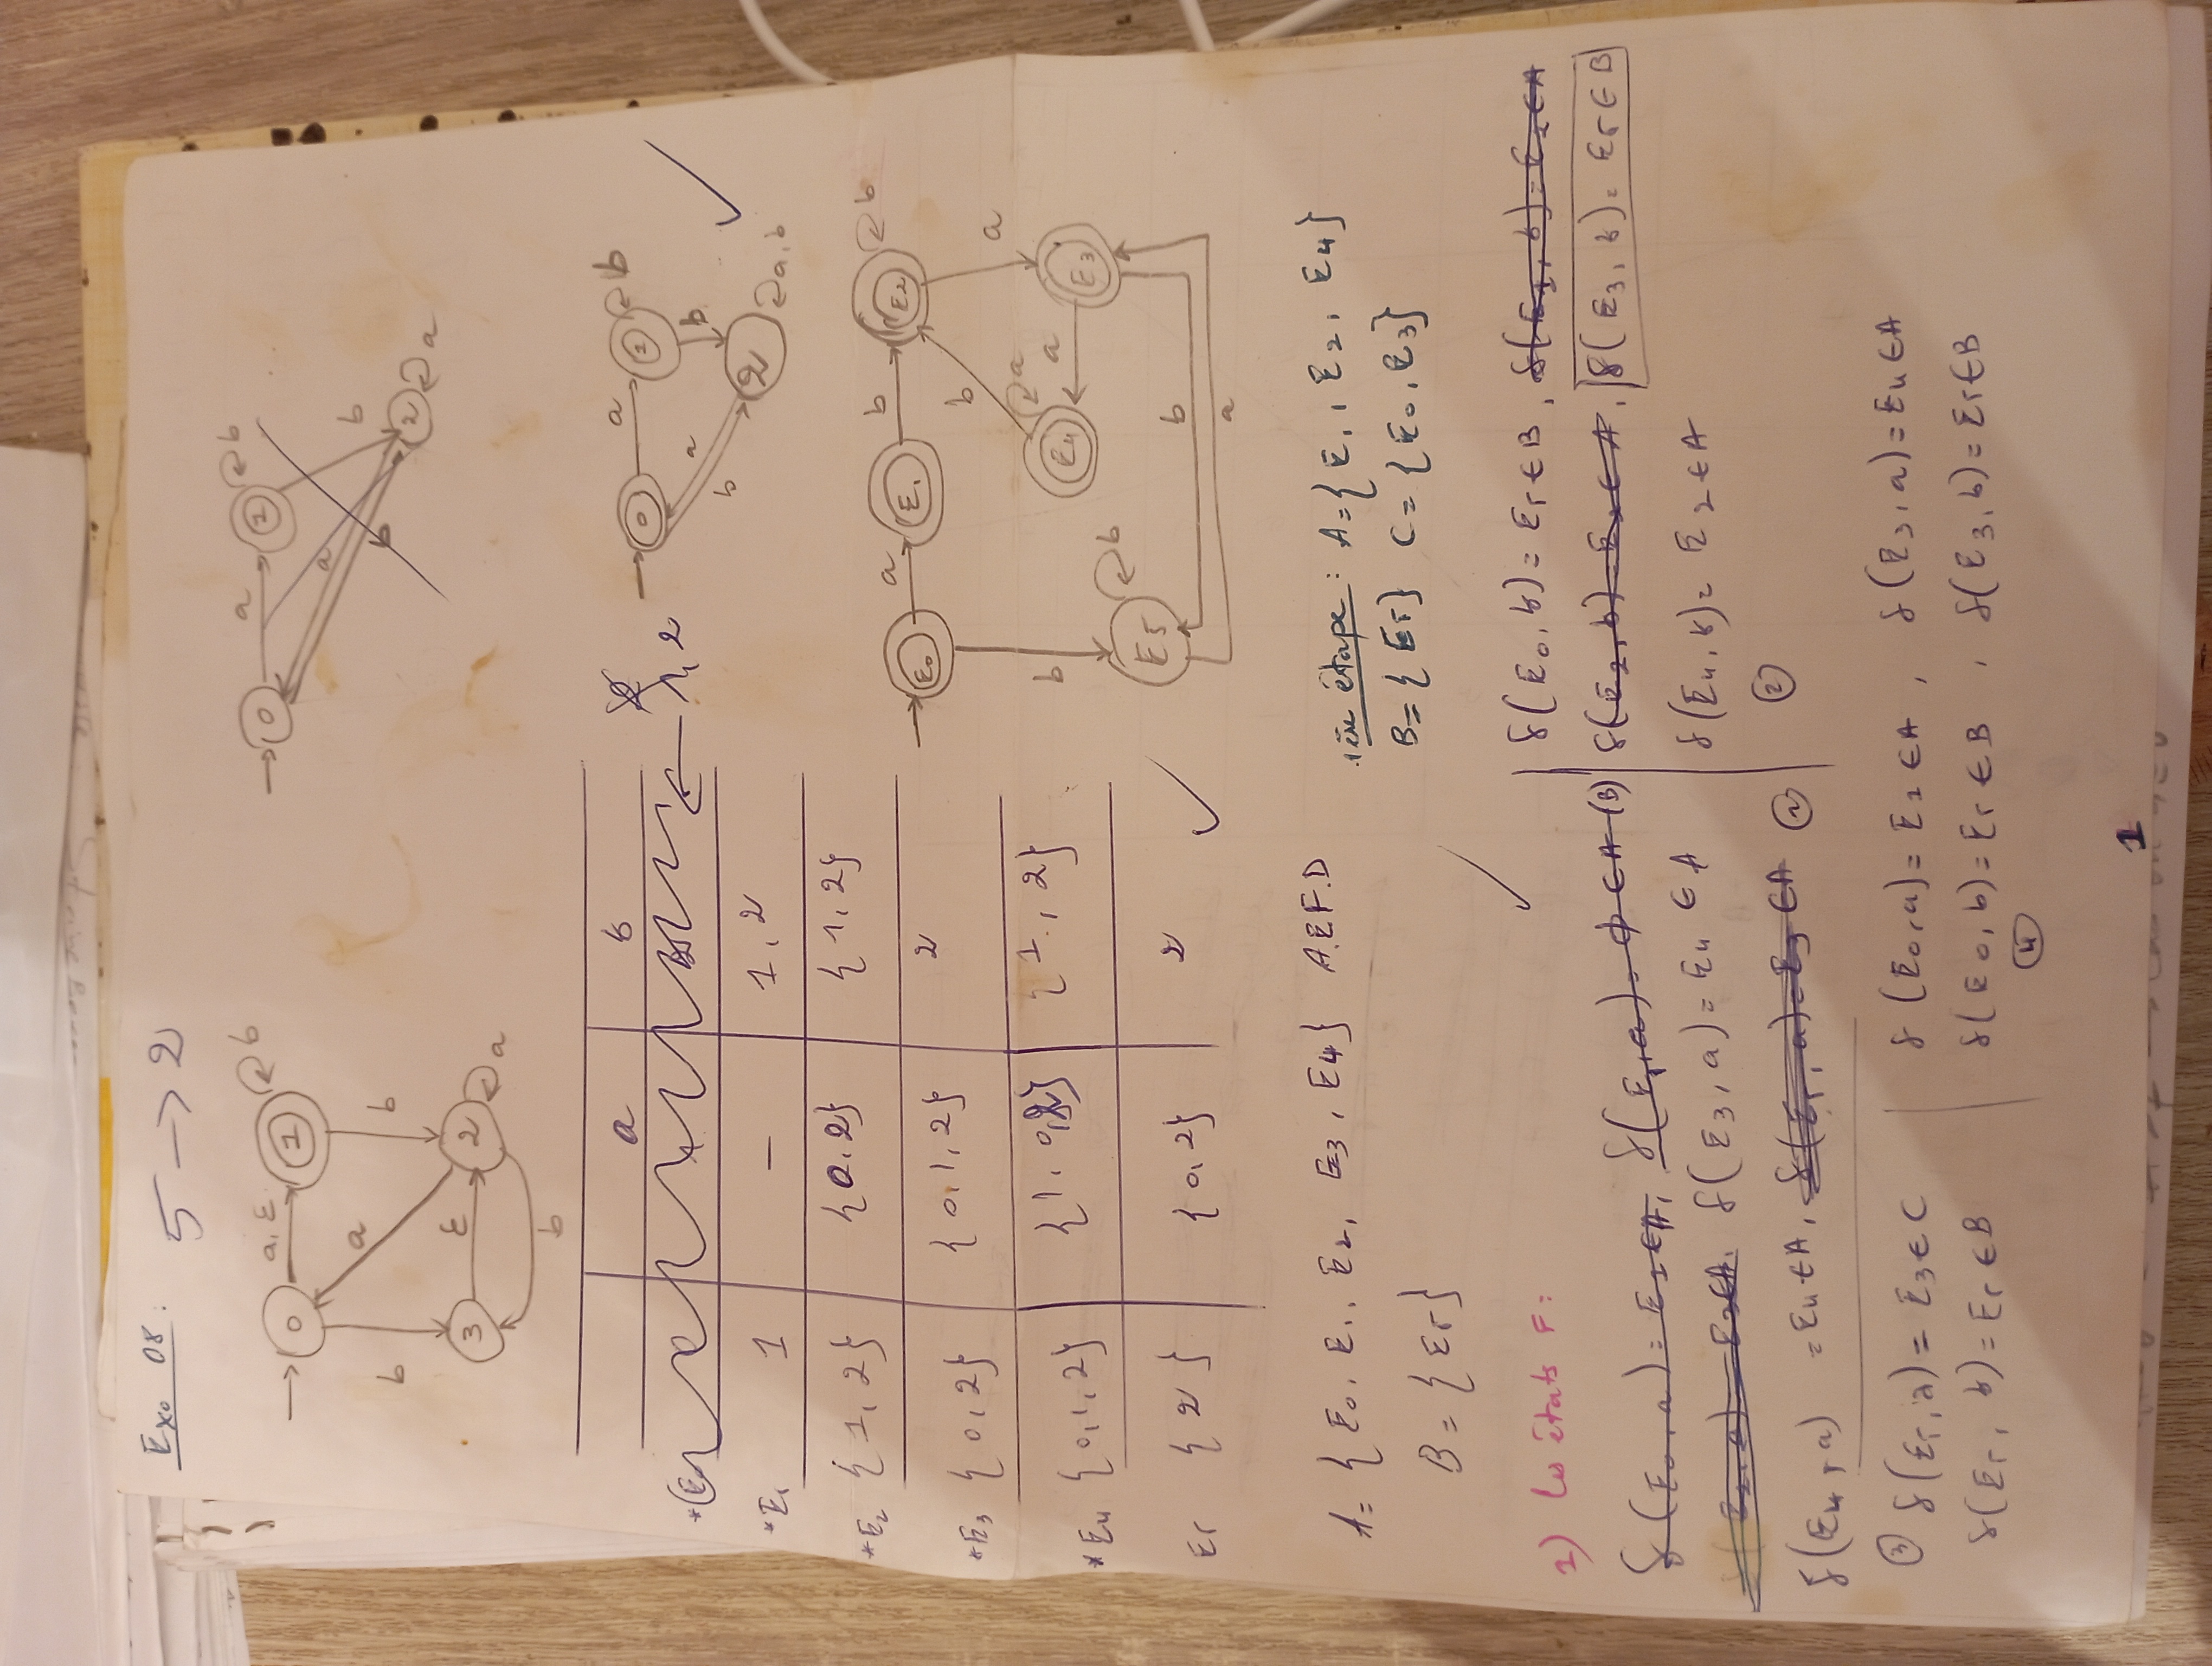 Exo 08 :
5 → 2
0 a, ε 1 b
b a b
3 ε 2 a
b
0 a 1 b
a b
b 2 a
a b
1, 2
*E1 1 – 1, 2
*E2 {1, 2} {0, 2} {1, 2}
*E3 {0, 2} {0, 1, 2} 2
*E4 {0, 1, 2} {1, 0, 2} {1, 2}
E5 {2} {0, 2} 2
0 a 1 b
a b b
2 a, b
E0 a E1 b E2 b
b b a
E4 a a E3
E5 b
b
a
A = {E0, E1, E2, E3, E4} A.E.F.D
B = {E5}
1ère étape : A = {E1, E2, E4}
B = {E5} C = {E0, E3}
1) les états F :
δ(E0, a) = E1 ∈ A, δ(E1, a) = ϕ ∈ A (B)
δ(E2, a) = E3 ∈ A. δ(E3, a) = E4 ∈ A
δ(E4, a) = E4 ∈ A, δ(E5, a) = E3 ∈ A 2
δ(E0, b) = E5 ∈ B, δ(E1, b) = E2 ∈ A
δ(E2, b) = E2 ∈ A, δ(E3, b) = E5 ∈ B
δ(E4, b) = E2 ∈ A
2
3 δ(E5, a) = E3 ∈ C
δ(E5, b) = E5 ∈ B
δ(E0, a) = E1 ∈ A, δ(E3, a) = E4 ∈ A
δ(E0, b) = E5 ∈ B, δ(E3, b) = E5 ∈ B
4
1